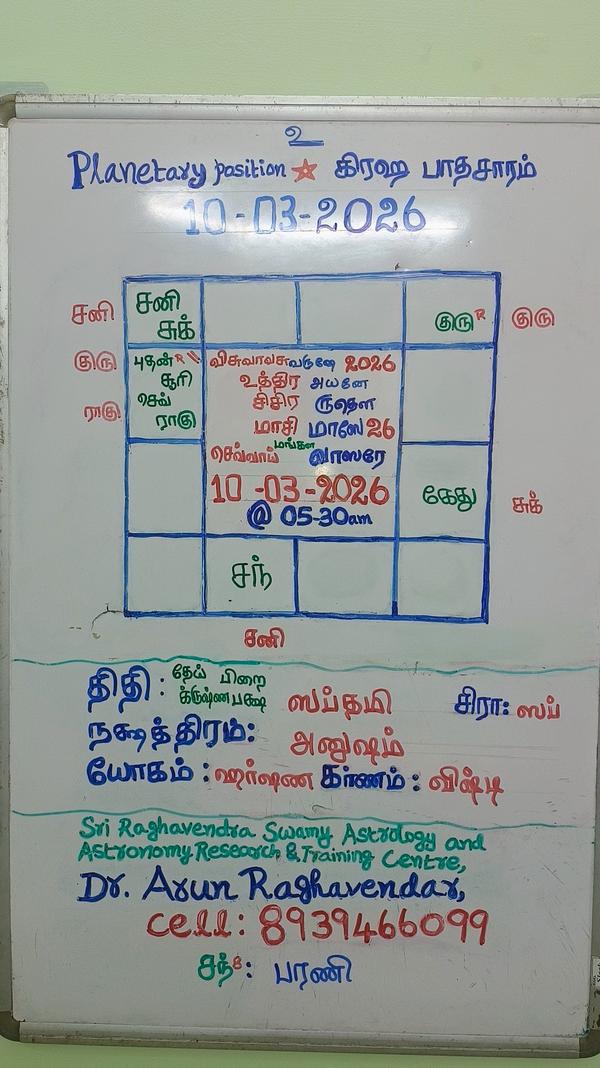 உ
Planetary position ☆ கிரஹ பாதசாரம்
10-03-2026
சனி
சனி
சுக்
குரு R
குரு
குரு
புதன் R
சூரி
செவ்
ராகு
ராகு
விசுவாவசுவருஷே 2026
உத்திர அயனே
சிசிர ருதௌ
மாசி மாஸே 26
செவ்வாய் மங்கள வாஸரே
10-03-2026
@ 05-30am
கேது
சுக்
சந்
சனி
திதி : தேய் பிறை
க்ருஷ்ணபக்ஷ ஸப்தமி சிரா: ஸப்
நக்ஷத்திரம்: அனுஷம்
யோகம் : ஹர்ஷண கர்ணம் : விஷ்டி
Sri Raghavendra Swamy Astrology and
Astronomy Research & Training Centre,
Dr. Arun Raghavendar,
cell: 8939466099
சந் 8 : பரணி